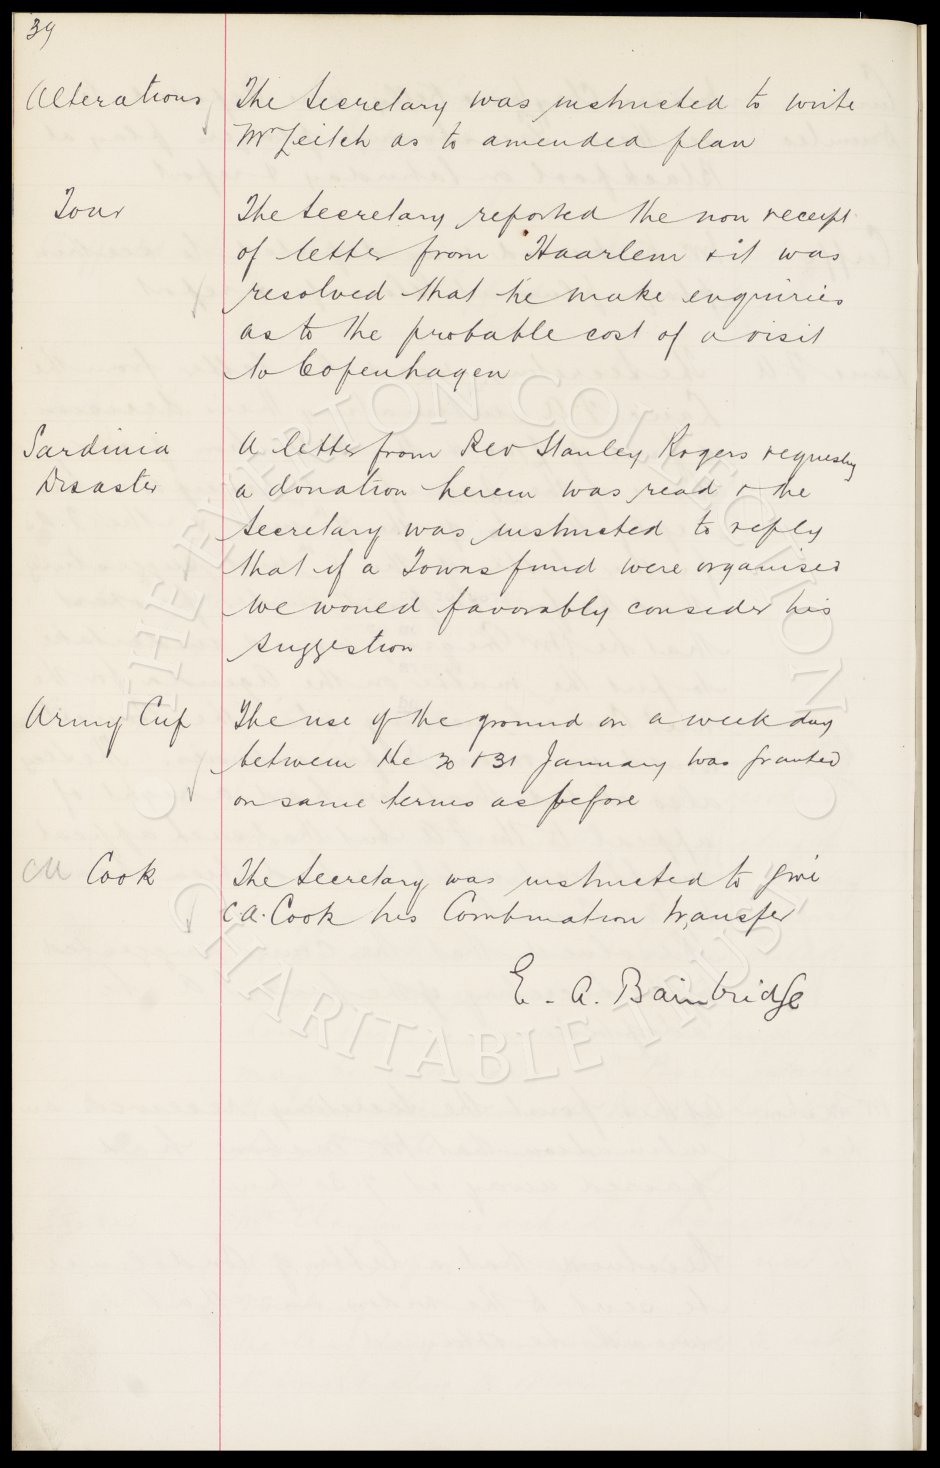 39
Alterations The Secretary was instructed to write
Mr Leitch as to amended plan
Tour The Secretary reported the non receipt
of letter from Haarlem & it was
resolved that he make enquiries
as to the probable cost of a visit
to Copenhagen
Sardinia A letter from Rev Stanley Rogers requesting
Disaster a donation herein was read & the
Secretary was instructed to reply
that if a Towns fund were organised
we would favorably consider his
suggestion
Army Cup The use of the ground on a week day
between the 20 & 31 January was granted
on same terms as before
Cook The Secretary was instructed to give
C A. Cook his Combination transfer
E. A. Bainbridge
THE EVERTON COLLECTION
CHARITABLE TRUST